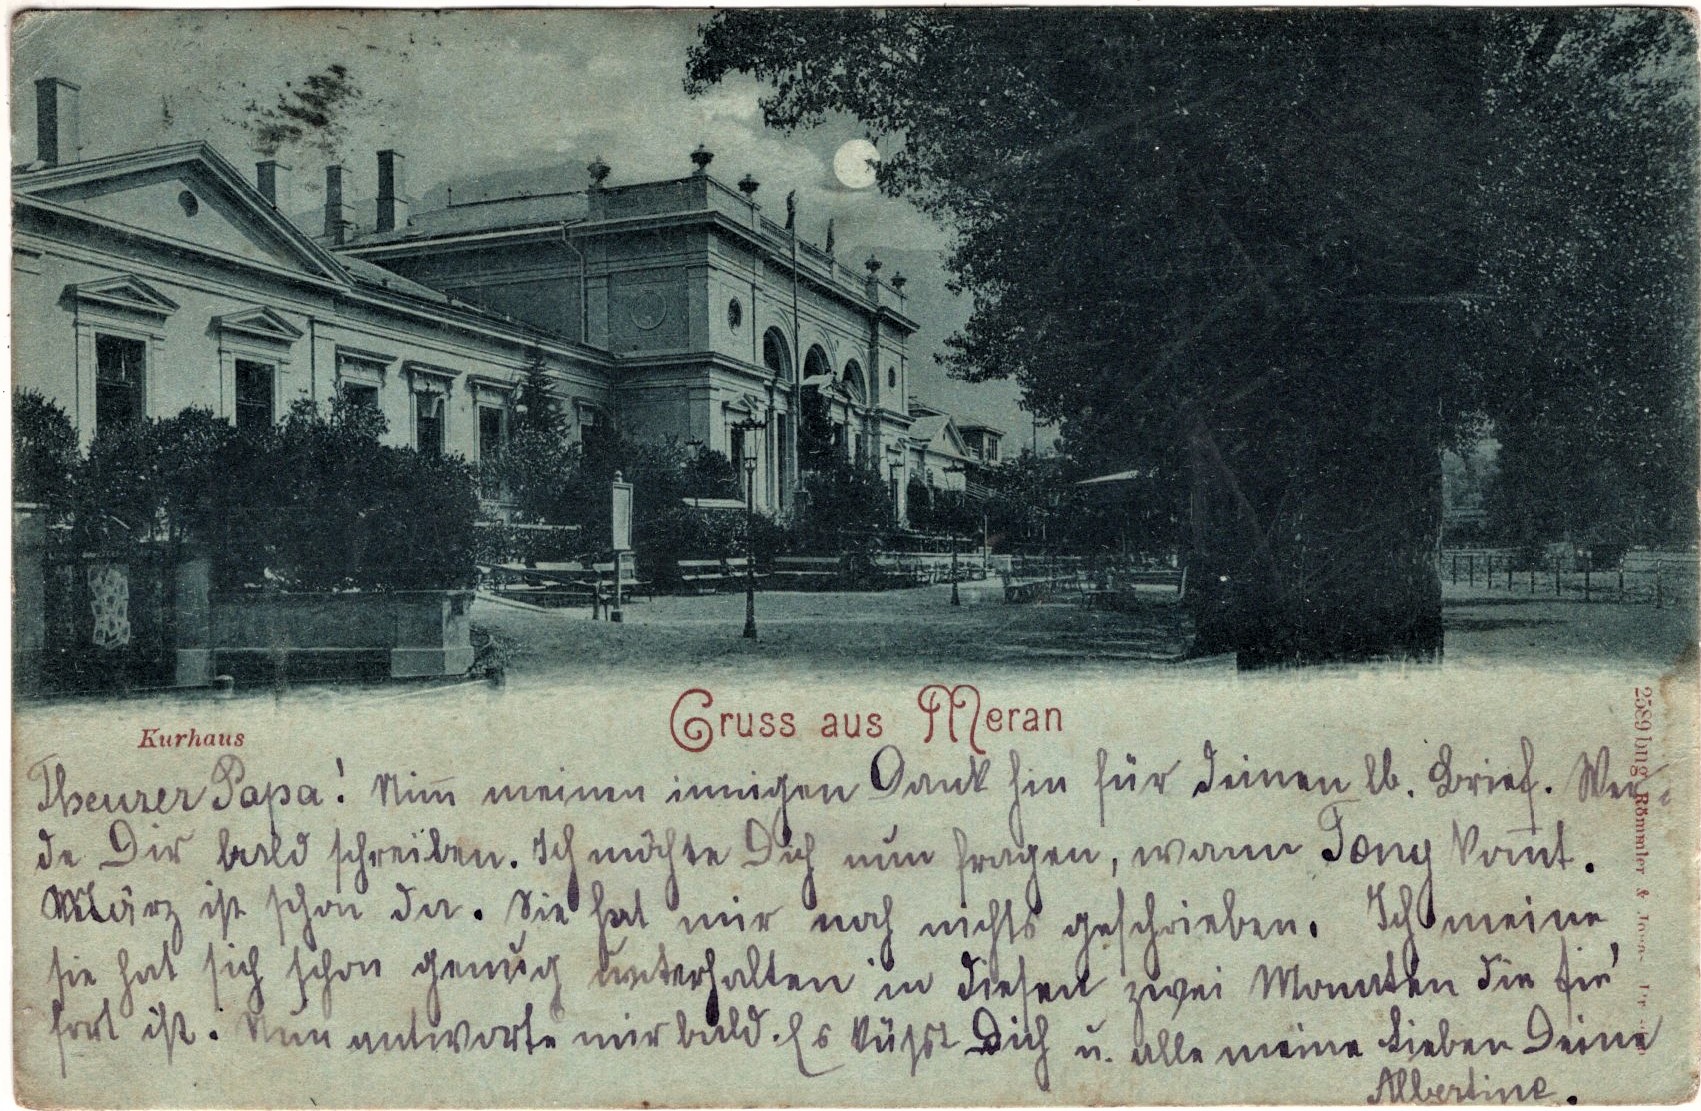 Gruss aus Meran
Kurhaus
2589 bug Römmler & Jonas, Dresden
Theurer Papa! Nim̅ meinen innigen Dank hin für Deinen lb. Brief. Wer-
de Dir bald schreiben. Ich möchte Dich nun fragen, wann Tony kom̅t.
März ist schon da. Sie hat mir noch nichts geschrieben. Ich meine
sie hat sich schon genug unterhalten in diesen zwei Monaten die sie
fort ist. Nun antworte mir bald. Es küßt Dich u. alle meine Lieben Deine
Albertine.